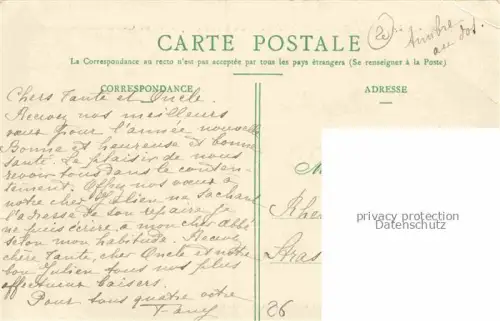 timbre
au dos.
CARTE POSTALE
La Correspondance au recto n'est pas acceptée par tous les pays étrangers (Se renseigner à la Poste)
CORRESPONDANCE
Chers Tante et Oncle.
Recevez nos meilleurs
vœux pour l'année nouvelle
Bonne et heureuse et bonne
santé. Le plaisir de nous
revoir tous dans le conten-
tement. Offrez nos vœux à
notre cher Julien ne sachant
l'adresse de son repaire je
ne puis écrire, à mon cher abbé
selon mon habitude. Recevez
chère Tante, cher Oncle et notre
bon Julien tous nos plus
affectueux baisers.
Pour tous quatre votre
Fany
ADRESSE
M
Rhe
Stras
86
privacy protection
Datenschutz